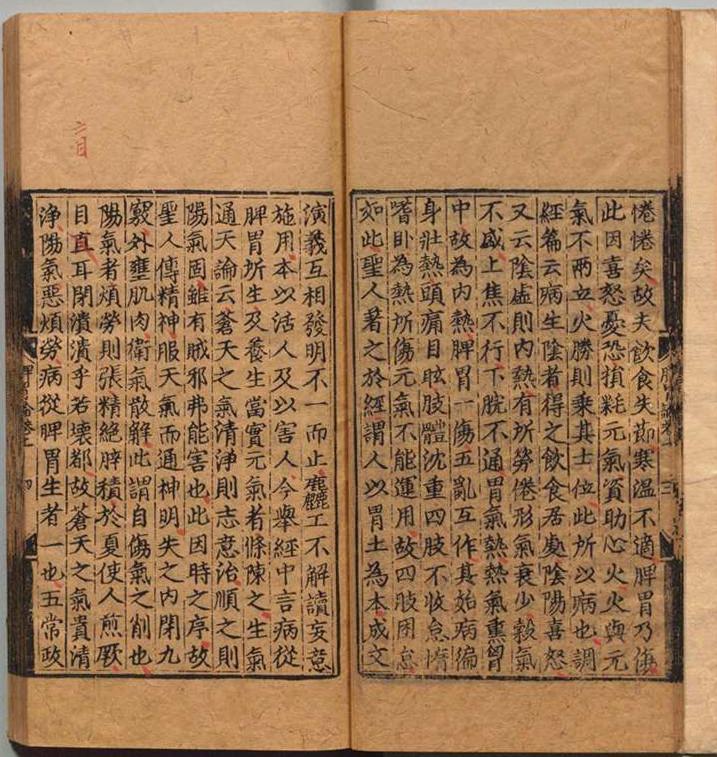 惓惓矣故夫飲食失節寒温不適脾胃乃傷
此因喜怒憂恐損耗元氣資助心火火與元
氣不兩立火勝則乗其土位此所以病也調
經篇云病生隂者得之飲食居處隂陽喜怒
又云隂虚則内熱有所勞倦形氣衰少糓氣
不盛上焦不行下脘不通胃氣熱熱氣熏胷
中故為内熱脾胃一傷五亂互作其始病徧
身壯熱頭痛目眩肢體沈重四肢不收怠惰
嗜卧為熱所傷元氣不能運用故四肢困怠
如此聖人著之於經謂人以胃土為本成文
演義互相發明不一而止麤工不解讀妄意
施用本以活人及以害人今舉經中言病從
脾胃所生及養生當實元氣者條陳之生氣
通天論云蒼天之氣清浄則志意治順之則
陽氣固雖有賊邪弗能害也此因時之序故
聖人傳精神服天氣而通神明失之内閉九
竅外壅肌肉衛氣散解此謂自傷氣之削也
陽氣者煩勞則張精絶辟積於夏使人煎厥
目盲耳閉潰潰乎若壊都故蒼天之氣貴清
浄陽氣惡煩勞病從脾胃生者一也五常政